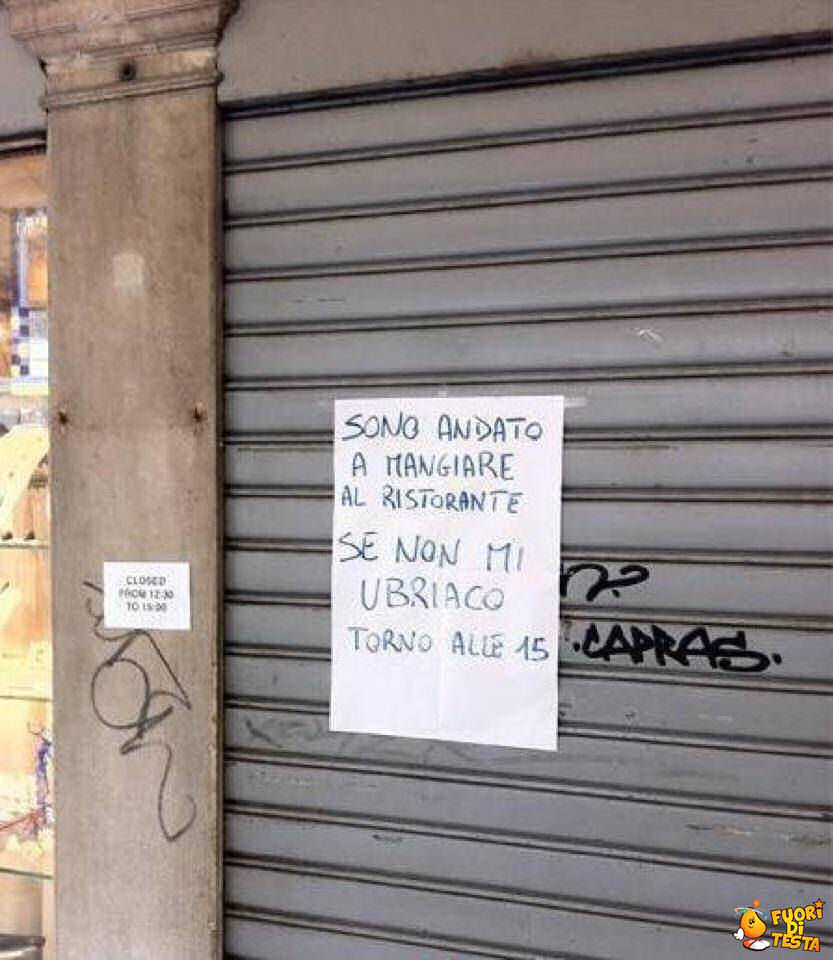 SONO ANDATO
A MANGIARE
AL RISTORANTE
SE NON MI
UBRIACO
TORNO ALLE 15
CLOSED
FROM 12:30
TO 15:00
.CAPRAS.
FUORI
DI
TESTA